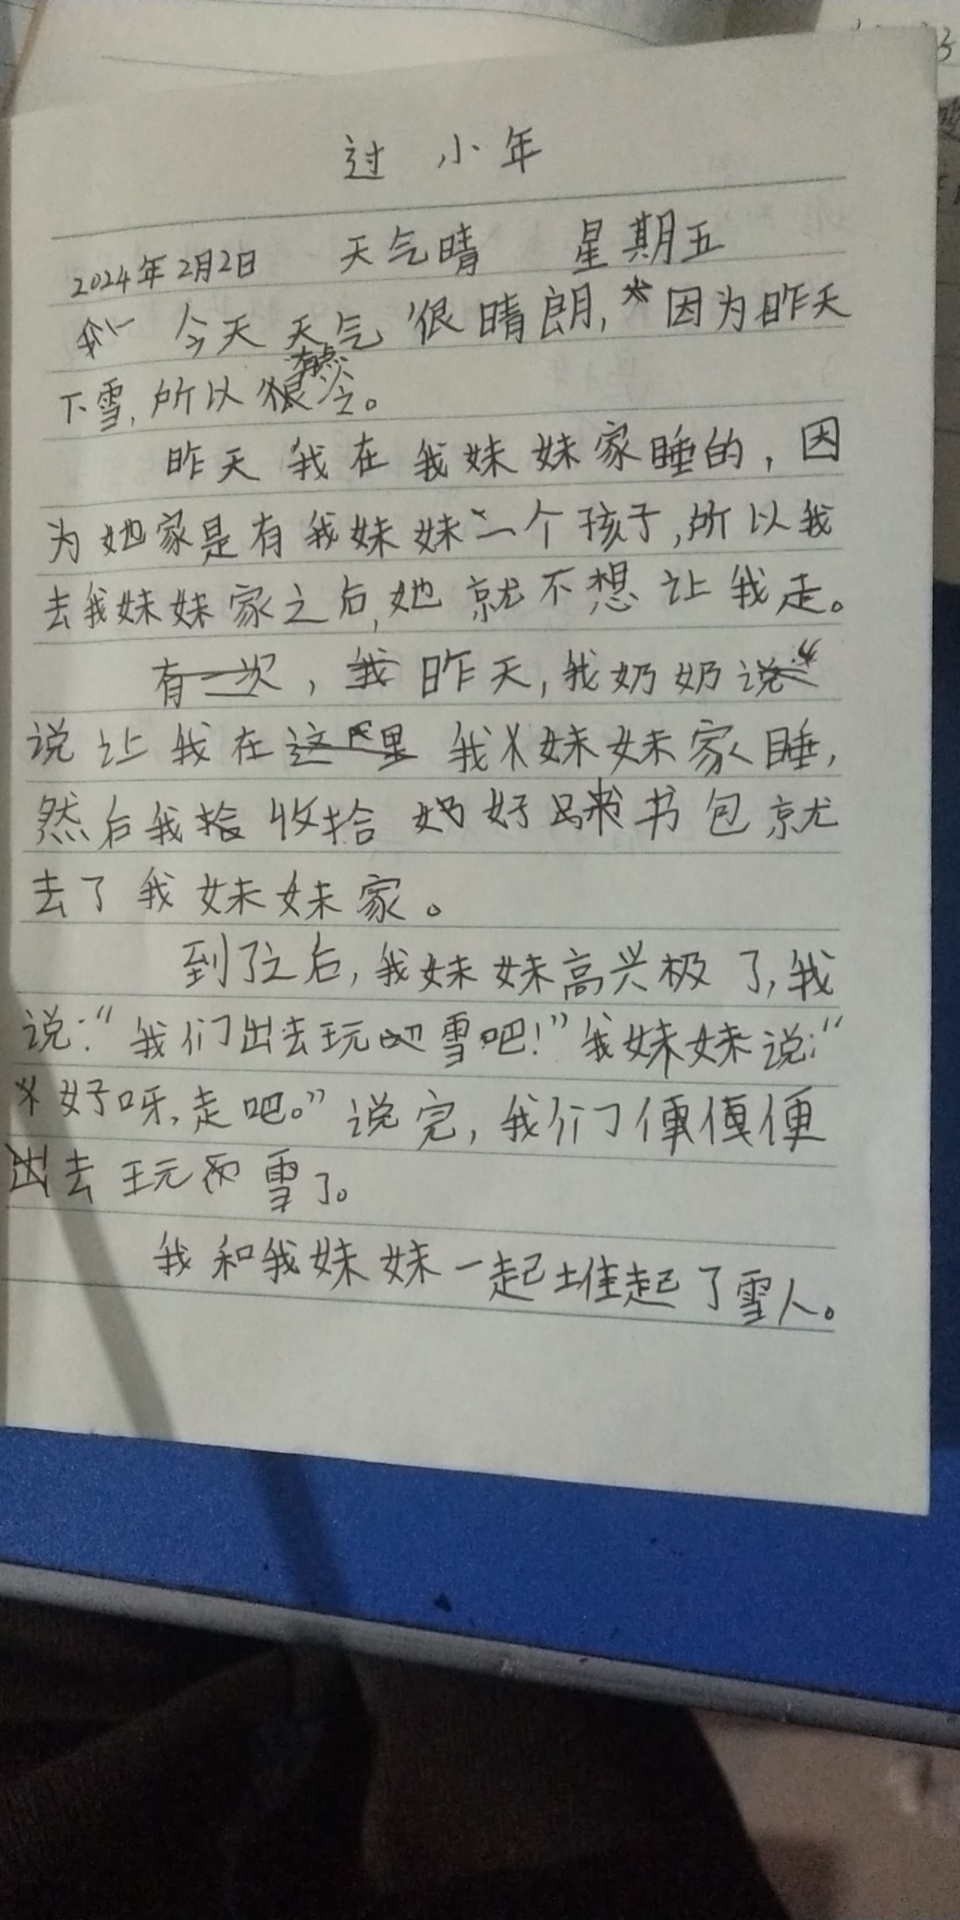 过小年
2024年2月2日 天气晴 星期五
今天天气很晴朗,因为昨天
有点
下雪,所以很冷。
昨天我在我妹妹家睡的,因
为她家是有我妹妹一个孩子,所以我
去我妹妹家之后,她就不想让我走。
有一次,我昨天,我奶奶说
说让我在这里我妹妹家睡,
然后我拾收拾好书包就
去了我妹妹家。
到了之后,我妹妹高兴极了,我
说:“我们出去玩雪吧!”我妹妹说:“
好呀,走吧。”说完,我们便便便
出去玩雪了。
我和我妹妹一起堆起了雪人。